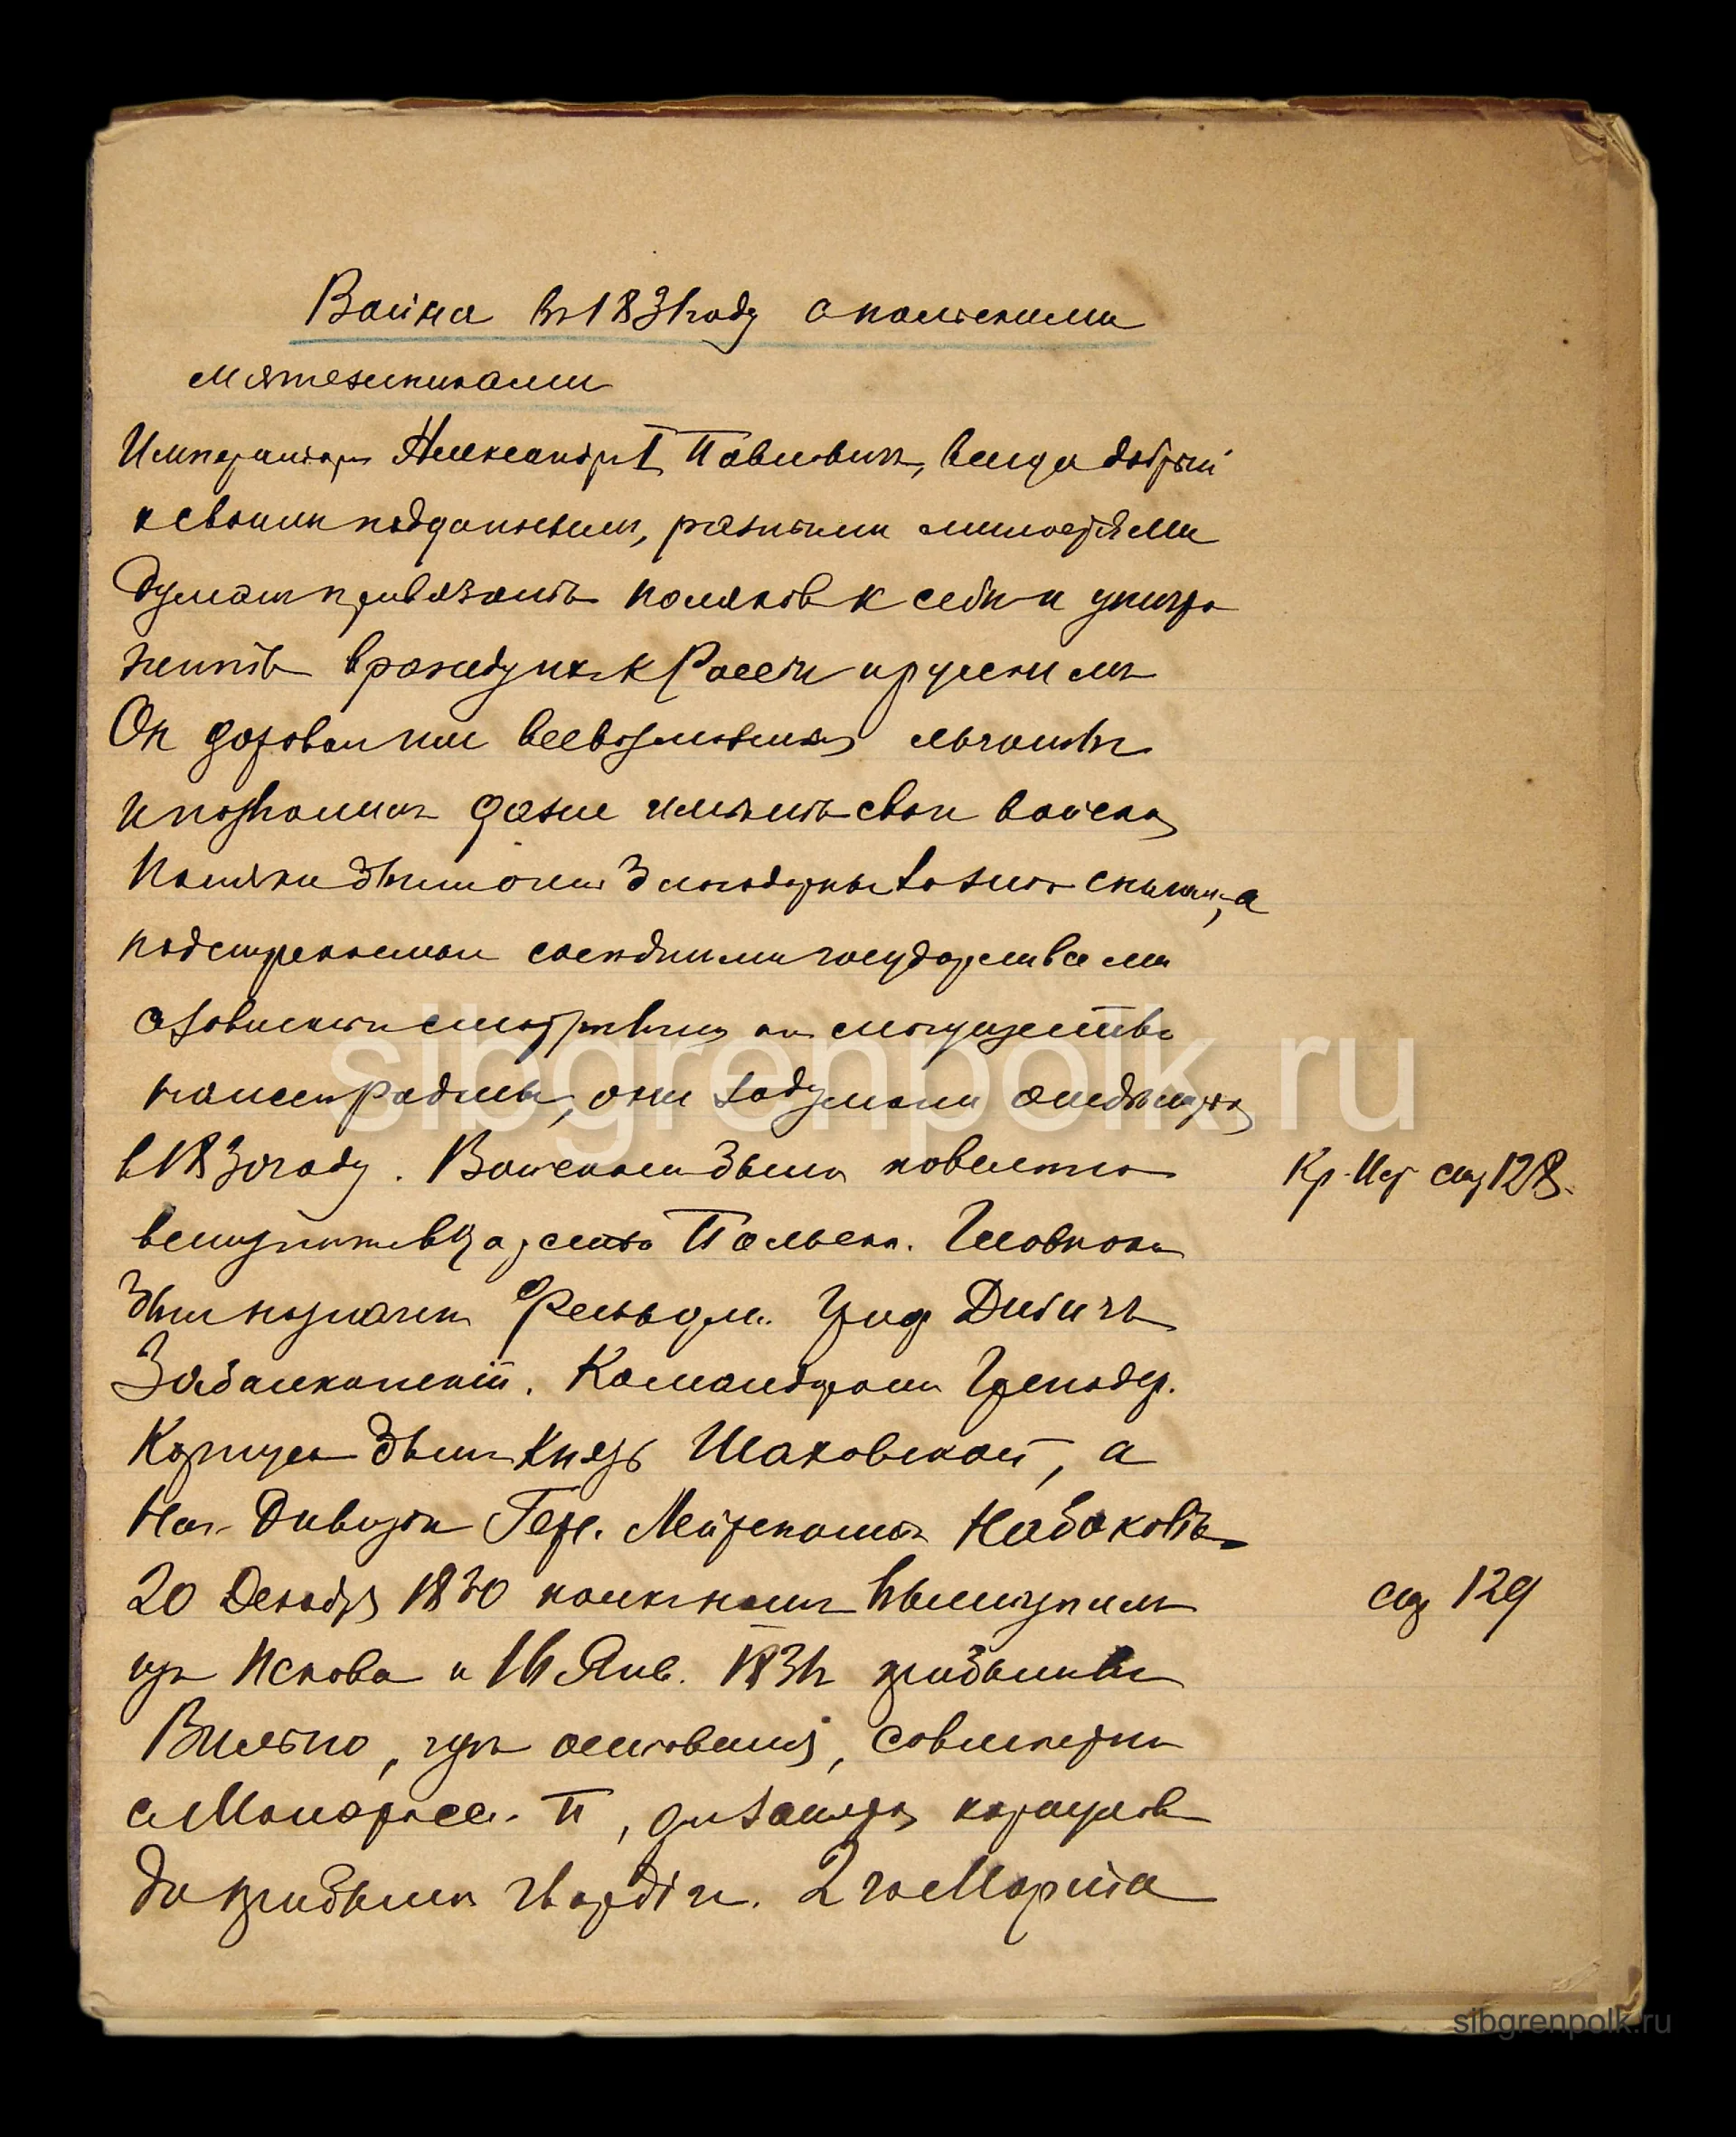 Война въ 1831 году с польскими
мятежниками
Императоръ Александръ I Павловичъ, всегда добрый
к своимъ подданнымъ, разными милостями
думалъ привязать поляковъ к себѣ и уничто
жить вражду ихъ к Россіи и русскимъ
Он даровал им всевозможныя льготы
и позволилъ даже имѣть свои войска
Поляки были очень благодарны за это, а
подстрекаемыи сосѣдними государствами
с завистью смотрѣвших на могущество
нашей Родины, они задумали отдѣлиться
в 1830 году. Войскамъ было повелено
Кр. Ист стр 128.
вступить в Царство Польское. Главноком
был назначен Фельдм. Граф Дибичъ
Забалканскій. Командромъ Гренадер.
Корпуса былъ Князь Шаховской, а
Нач. Дивизіи Гер. Лейтенантъ Набоковъ
20 Декабря 1830 полк нашъ выступилъ
стр 129
изъ Пскова и 16 Янв. 1831г прибылъ въ
Вильно, гдѣ оставался, совмѣстно
с Малоросс. П, для защиты
до прибытія гвардіи. 2 го Марта
sibgrenpolk.ru
sibgrenpolk.ru